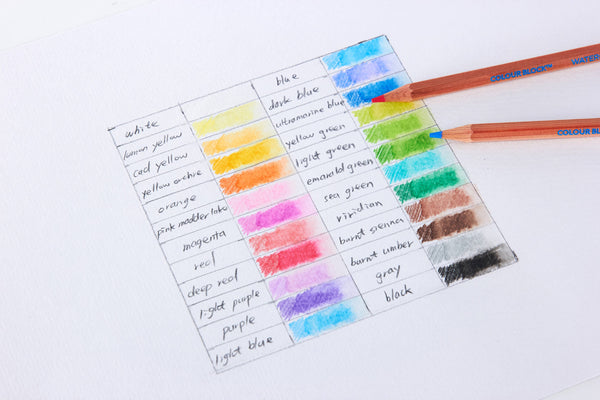 white
lemon yellow
cad yellow
yellow orchre
orange
pink madder lake
magenta
red
deep red
light purple
purple
light blue
blue
dark blue
ultramarine blue
yellow green
light green
emerald green
sea green
viridian
burnt sienna
burnt umber
gray
black
COLOUR BLOCK™ WATER
COLOUR BL